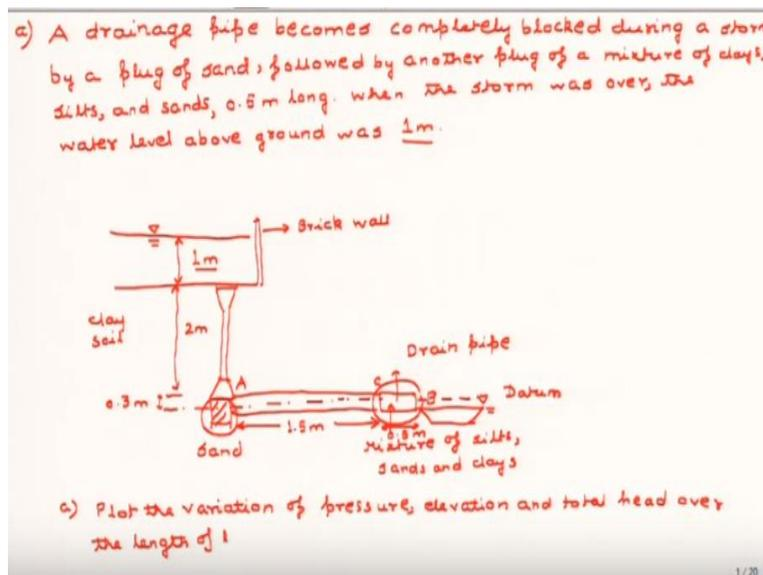 a) A drainage pipe becomes completely blocked during a stor
by a plug of sand, followed by another plug of a mixture of clays,
silts, and sands, 0.5 m long. When the storm was over, the
water level above ground was 1m.
Brick wall
1m
clay
soil
2m
Drain pipe
A
C
B
Datum
0.3m
1.5m
0.5m
sand
Mixture of silts,
sands and clays
a) Plot the variation of pressure, elevation and total head over
the length of
1/20